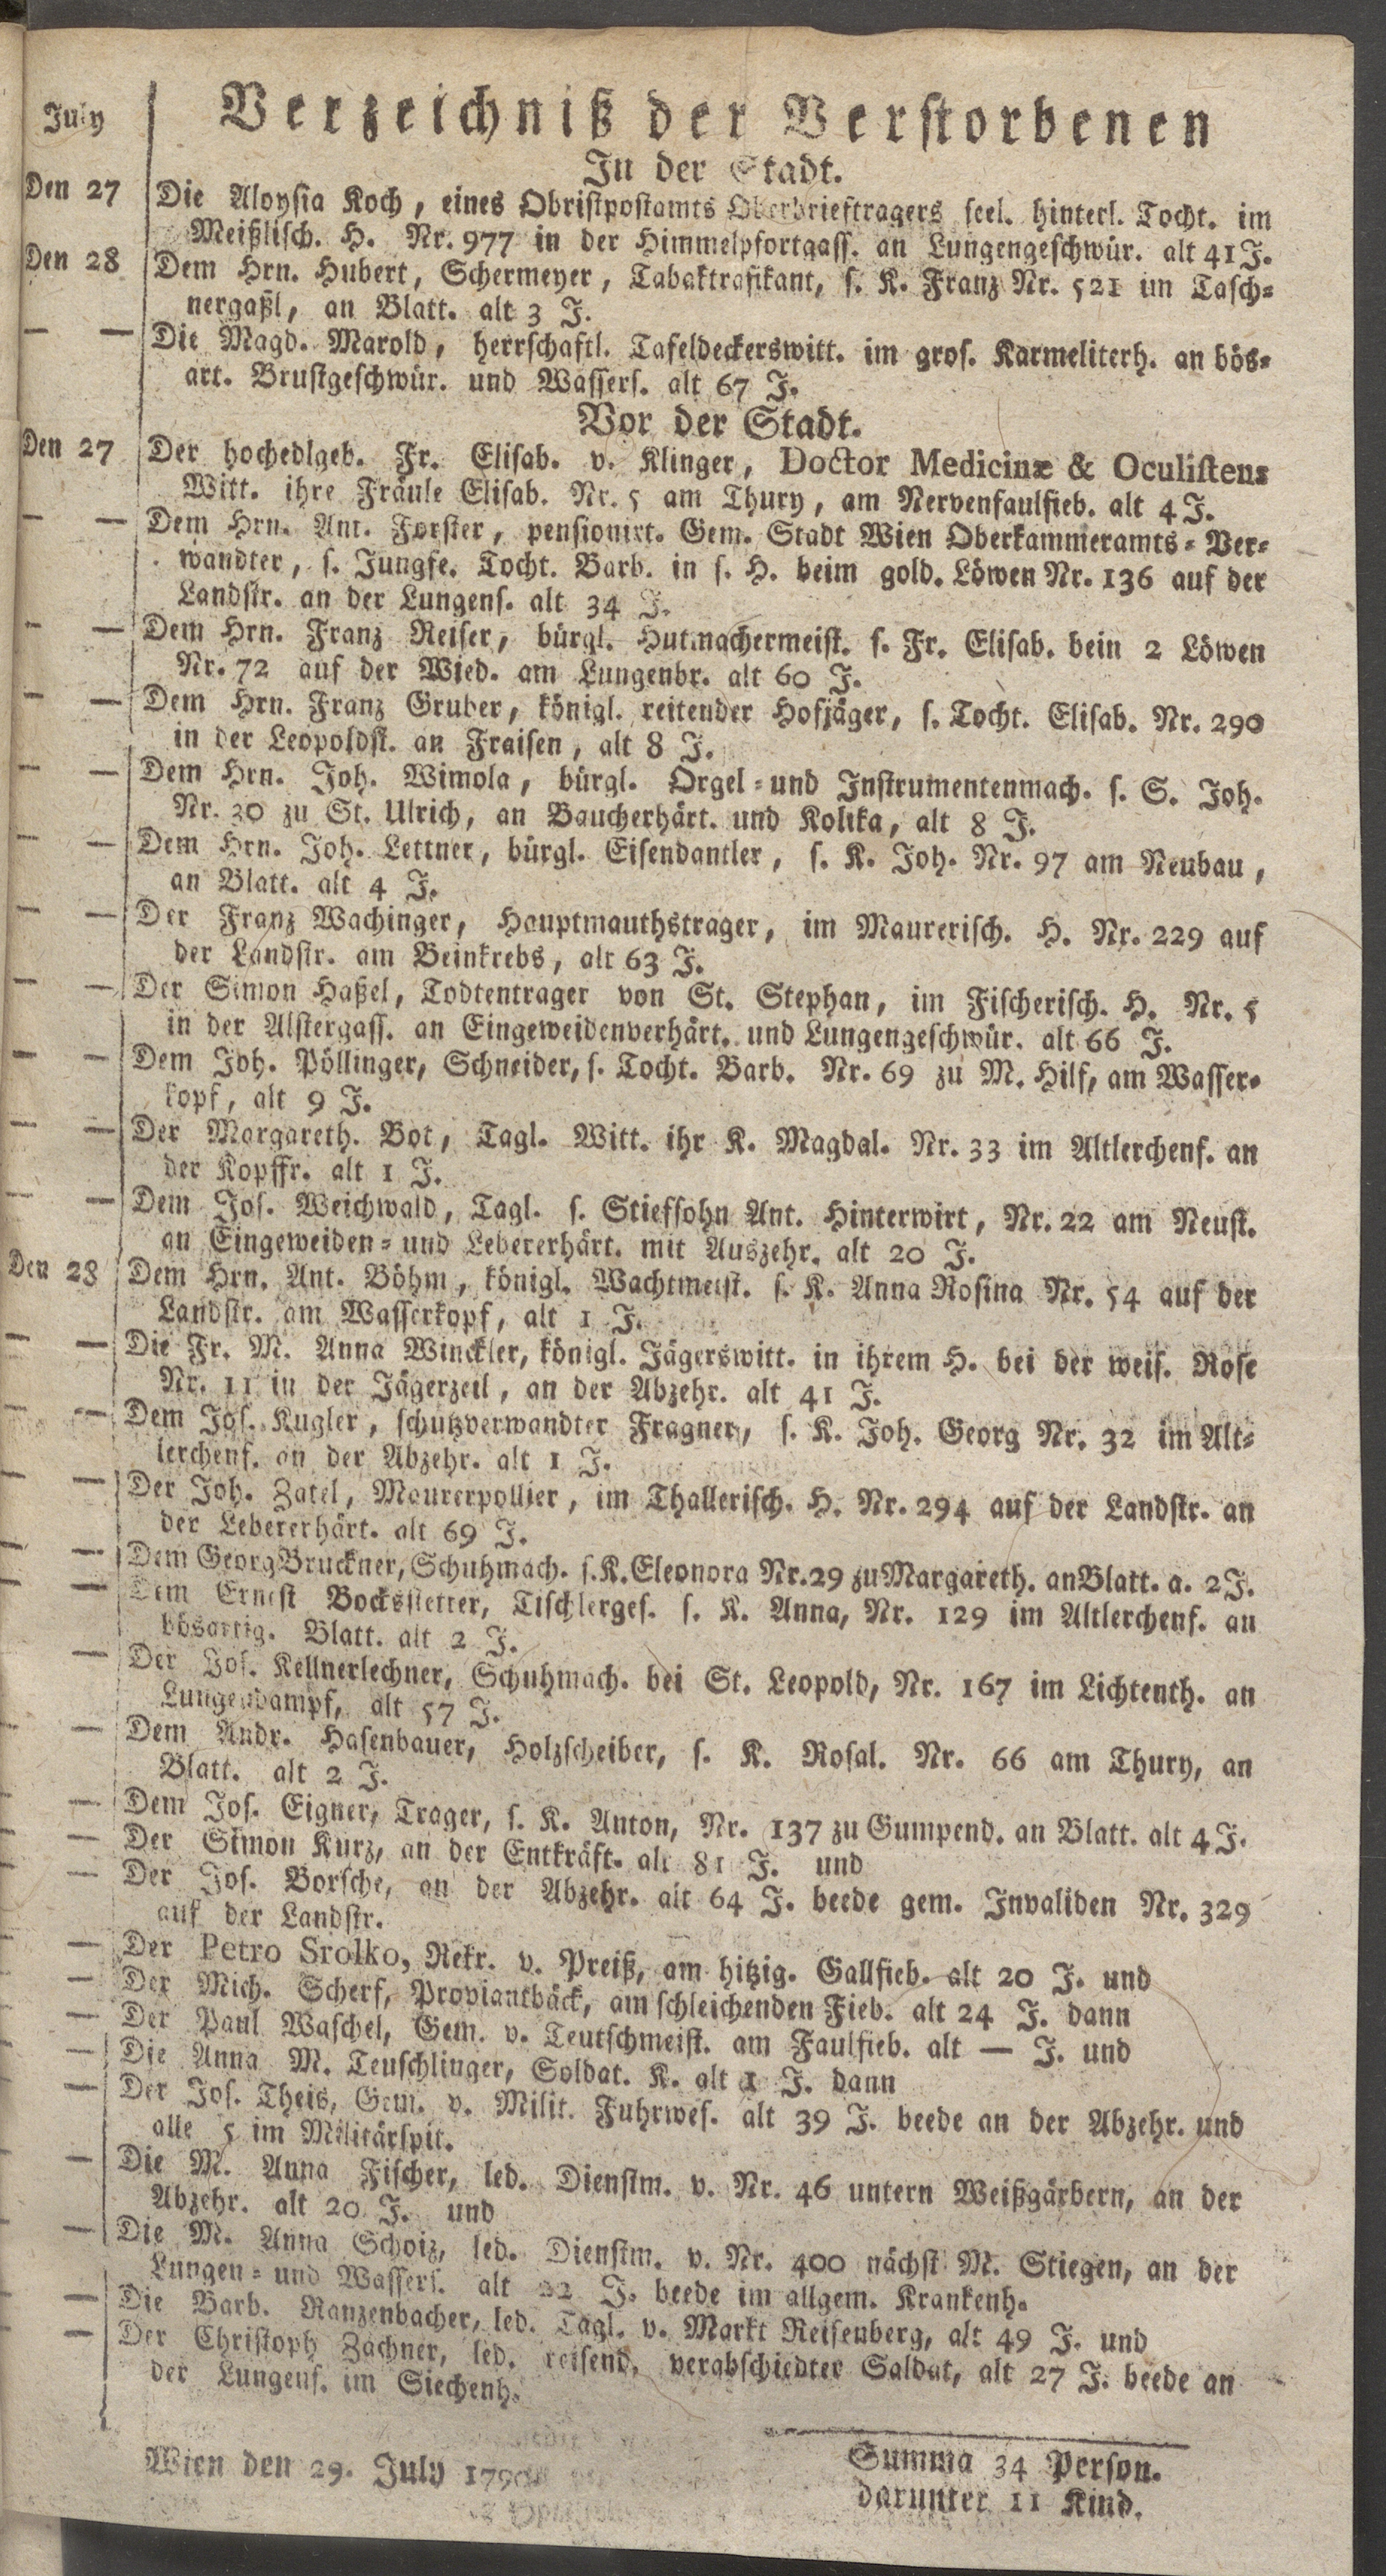 July
Verzeichniß der Verstorbenen
In der Stadt.
Den 27 Die Aloysia Koch, eines Obristpostamts Oberbrieftragers seel. hinterl. Tocht. im
Meißlisch. H. Nr. 977 in der Himmelpfortgass. an Lungengeschwür. alt 41 J.
Den 28 Dem Hrn. Hubert, Schermeyer, Tabaktrafikant, s. K. Franz Nr. 521 im Tasch-
nergaßl, an Blatt. alt 3 J.
— — Die Magd. Marold, herrschaftl. Tafeldeckerswitt. im gros. Karmeliterh. an bös-
art. Brustgeschwür. und Wassers. alt 67 J.
Vor der Stadt.
Den 27 Der hochedlgeb. Fr. Elisab. v. Klinger, Doctor Medicinæ & Oculistens
Witt. ihre Fräule Elisab. Nr. 5 am Thury, am Nervenfaulfieb. alt 4 J.
— — Dem Hrn. Ant. Forster, pensionirt. Gem. Stadt Wien Oberkammeramts-Ver-
wandter, s. Jungfe. Tocht. Barb. in s. H. beim gold. Löwen Nr. 136 auf der
Landstr. an der Lungens. alt 34 J.
— — Dem Hrn. Franz Reiser, bürgl. Hutmachermeist. s. Fr. Elisab. bein 2 Löwen
Nr. 72 auf der Wied. am Lungenbr. alt 60 J.
— — Dem Hrn. Franz Gruber, königl. reitender Hofjäger, s. Tocht. Elisab. Nr. 290
in der Leopoldst. an Fraisen, alt 8 J.
— — Dem Hrn. Joh. Wimola, bürgl. Orgel-und Instrumentenmach. s. S. Joh.
Nr. 30 zu St. Ulrich, an Baucherhärt. und Kolika, alt 8 J.
— — Dem Hrn. Joh. Lettner, bürgl. Eisendantler, s. K. Joh. Nr. 97 am Neubau,
an Blatt. alt 4 J.
— — Der Franz Wachinger, Hauptmauthstrager, im Maurerisch. H. Nr. 229 auf
der Landstr. am Beinkrebs, alt 63 J.
— — Der Simon Haßel, Todtentrager von St. Stephan, im Fischerisch. H. Nr. 5
in der Alstergass. an Eingeweidenverhärt. und Lungengeschwür. alt 66 J.
— — Dem Joh. Pöllinger, Schneider, s. Tocht. Barb. Nr. 69 zu M. Hilf, am Wasser-
kopf, alt 9 J.
— — Der Margareth. Bot, Tagl. Witt. ihr K. Magdal. Nr. 33 im Altlerchenf. an
der Kopffr. alt 1 J.
— — Dem Jos. Weichwald, Tagl. s. Stiefsohn Ant. Hinterwirt, Nr. 22 am Neust.
an Eingeweiden-und Lebererhärt. mit Auszehr. alt 20 J.
Den 28 Dem Hrn. Ant. Böhm, königl. Wachtmeist. s. K. Anna Rosina Nr. 54 auf der
Landstr. am Wasserkopf, alt 1 J.
— — Die Fr. M. Anna Winckler, königl. Jägerswitt. in ihrem H. bei der weis. Rose
Nr. 11 in der Jägerzeil, an der Abzehr. alt 41 J.
— — Dem Jos. Kugler, schutzverwandter Fragner, s. K. Joh. Georg Nr. 32 im Alt-
lerchenf. an der Abzehr. alt 1 J.
— — Der Joh. Zatel, Maurerpollier, im Thallerisch. H. Nr. 294 auf der Landstr. an
der Lebererhärt. alt 69 J.
— — Dem Georg Bruckner, Schuhmach. s. K. Eleonora Nr. 29 zu Margareth. an Blatt. a. 2 J.
— — Dem Ernest Bocksstetter, Tischlerges. s. K. Anna, Nr. 129 im Altlerchenf. an
bösartig. Blatt. alt 2 J.
— Der Jos. Kellnerlechner, Schuhmach. bei St. Leopold, Nr. 167 im Lichtenth. an
Lungendampf, alt 57 J.
— — Dem Andr. Hasenbauer, Holzscheiber, s. K. Rosal. Nr. 66 am Thury, an
Blatt. alt 2 J.
— — Dem Jos. Eigner, Trager, s. K. Anton, Nr. 137 zu Gumpend. an Blatt. alt 4 J.
— — Der Simon Kurz, an der Entkräft. alt 81 J. und
— — Der Jos. Borsche, an der Abzehr. alt 64 J. beede gem. Invaliden Nr. 329
auf der Landstr.
— — Der Petro Srolko, Rekr. v. Preiß, am hitzig. Gallfieb. alt 20 J. und
— — Der Mich. Scherf, Proviantbäck, am schleichenden Fieb. alt 24 J. dann
— — Der Paul Waschel, Gem. v. Teutschmeist. am Faulfieb. alt — J. und
— — Die Anna M. Teuschlinger, Soldat. K. alt 1 J. dann
— — Der Jos. Theis, Gem. v. Milit. Fuhrwes. alt 39 J. beede an der Abzehr. und
alle 5 im Militärspit.
— — Die M. Anna Fischer, led. Dienstm. v. Nr. 46 untern Weißgärbern, an der
Abzehr. alt 20 J. und
— — Die M. Anna Schoiz, led. Dienstm. v. Nr. 400 nächst M. Stiegen, an der
Lungen-und Wassers. alt 22 J. beede im allgem. Krankenh.
— — Die Barb. Ranzenbacher, led. Tagl. v. Markt Reisenberg, alt 49 J. und
— — Der Christoph Zachner, led. reisend. verabschiedter Saldat, alt 27 J. beede an
der Lungens. im Siechenh.
Wien den 29. July 1790
Summa 34 Person.
darunter 11 Kind.